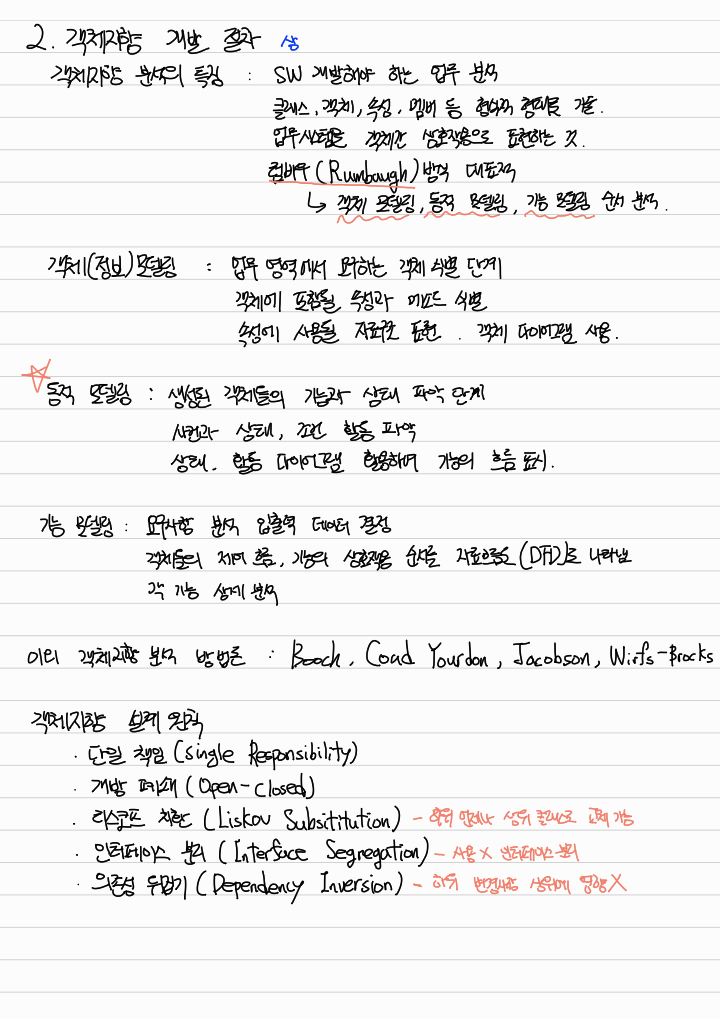 2. 객체지향 개발 절차 상
객체지향 분석의 특징 : SW 개발해야 하는 업무 분석
클래스, 객체, 속성, 멤버 등 형태로 기술.
업무시스템을 객체간 상호작용으로 표현하는 것.
럼바우 (Rumbaugh) 방식 대표적
↳ 객체 모델링, 동적 모델링, 기능 모델링 순서 분석.
객체(정보)모델링 : 업무 영역에서 요구하는 객체 식별 단계
객체에 포함될 속성과 메소드 식별
속성에 사용될 자료구조 표현. 객체 다이어그램 사용.
☆ 동적 모델링 : 생성된 객체들의 기능과 상태 파악 단계
사건과 상태, 조건 활동 파악
상태. 활동 다이어그램 활용하여 기능의 흐름 표시.
기능 모델링 : 요구사항 분석 입출력 데이터 결정
객체들의 제어 흐름, 기능의 상호작용 순서를 자료흐름도(DFD)로 나타냄
각 기능 상세 분석
이외 객체지향 분석 방법론 : Booch, Coad Yourdon, Jacobson, Wirfs-Brocks
객체지향 설계 원칙
· 단일 책임 (Single Responsibility)
· 개방 폐쇄 (Open-closed)
· 리스코프 치환 (Liskov Subsititution) - 하위 상위 클래스로 교체 가능
· 인터페이스 분리 (Interface Segregation) - 사용 X 인터페이스 분리
· 의존성 뒤집기 (Dependency Inversion) - 하위 변경사항 상위에 영향 X